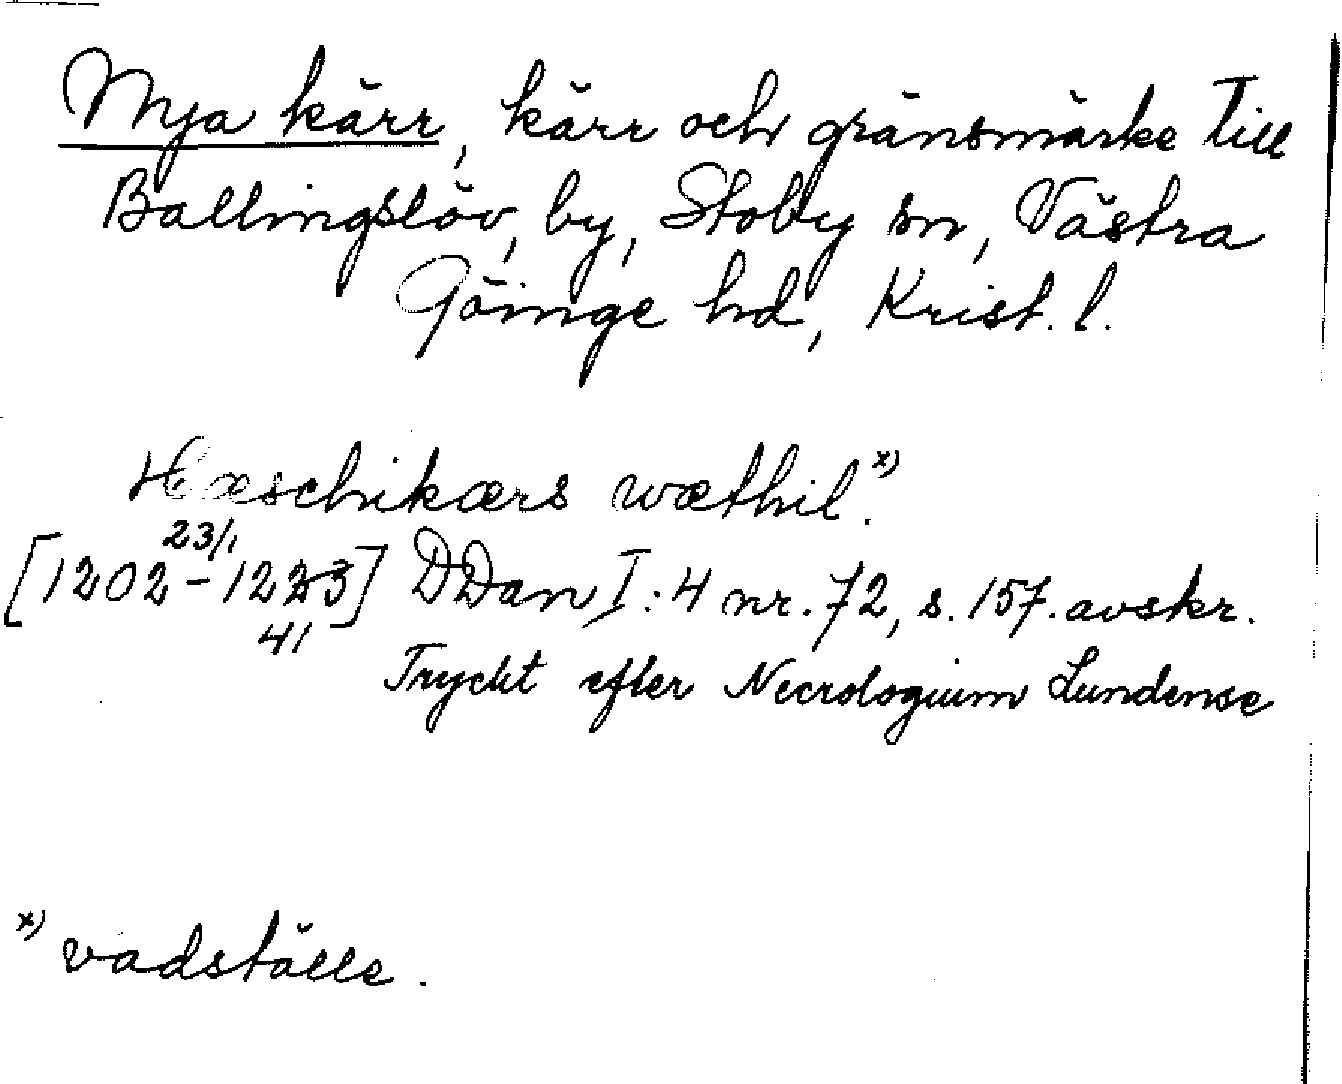 Mya kärr, kärr och gränsmärke till
Ballingslöv, by, Stoby sn, Västra
Göinge hd, Krist. l.
Hæschikærs wæthil.x)
23/1
[1202-1223] DDan I:4 nr. 72, s. 157. avskr.
41
Tryckt efter Necrologium Lundense
x) vadställe.